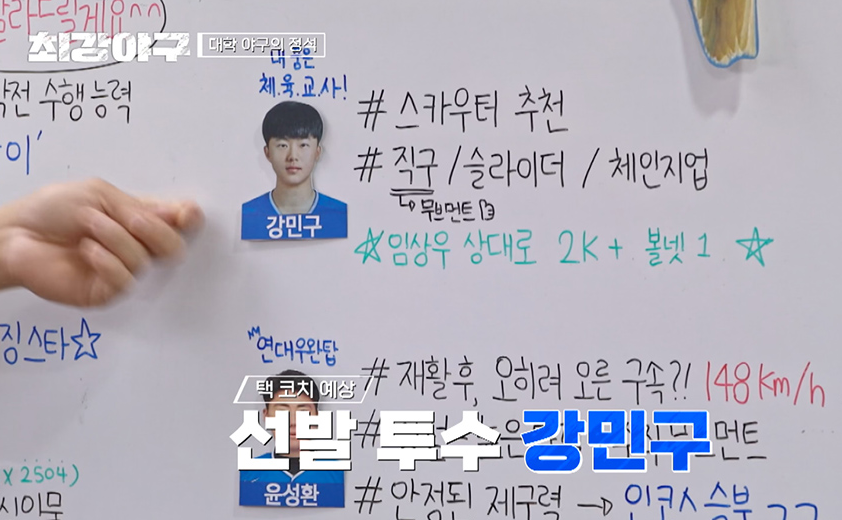 날라드릴게요^^
최강야구
대학 야구의 정석
작전 수행 능력
이'
대 풍은
체.육.교.사!
강민구
# 스카우터 추천
# 직구 / 슬라이더 / 체인지업
↳ 무브먼트
☆ 임상우 상대로 2K + 볼넷 1 ☆
징스타☆
연대우완탑
# 재활 후, 오히려 오른 구속?! 148km/h
택 코치 예상
선발 투수 강민구
먼트
윤성환
x 2504)
시이묵
# 안정된 제구력 → 인코스 승부